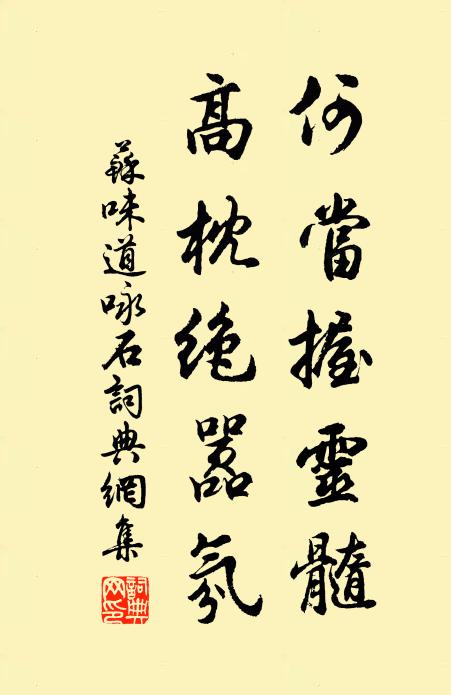 何當握靈髓
高枕絶囂氛
蘇味道咏石詞典網集
詞典網印